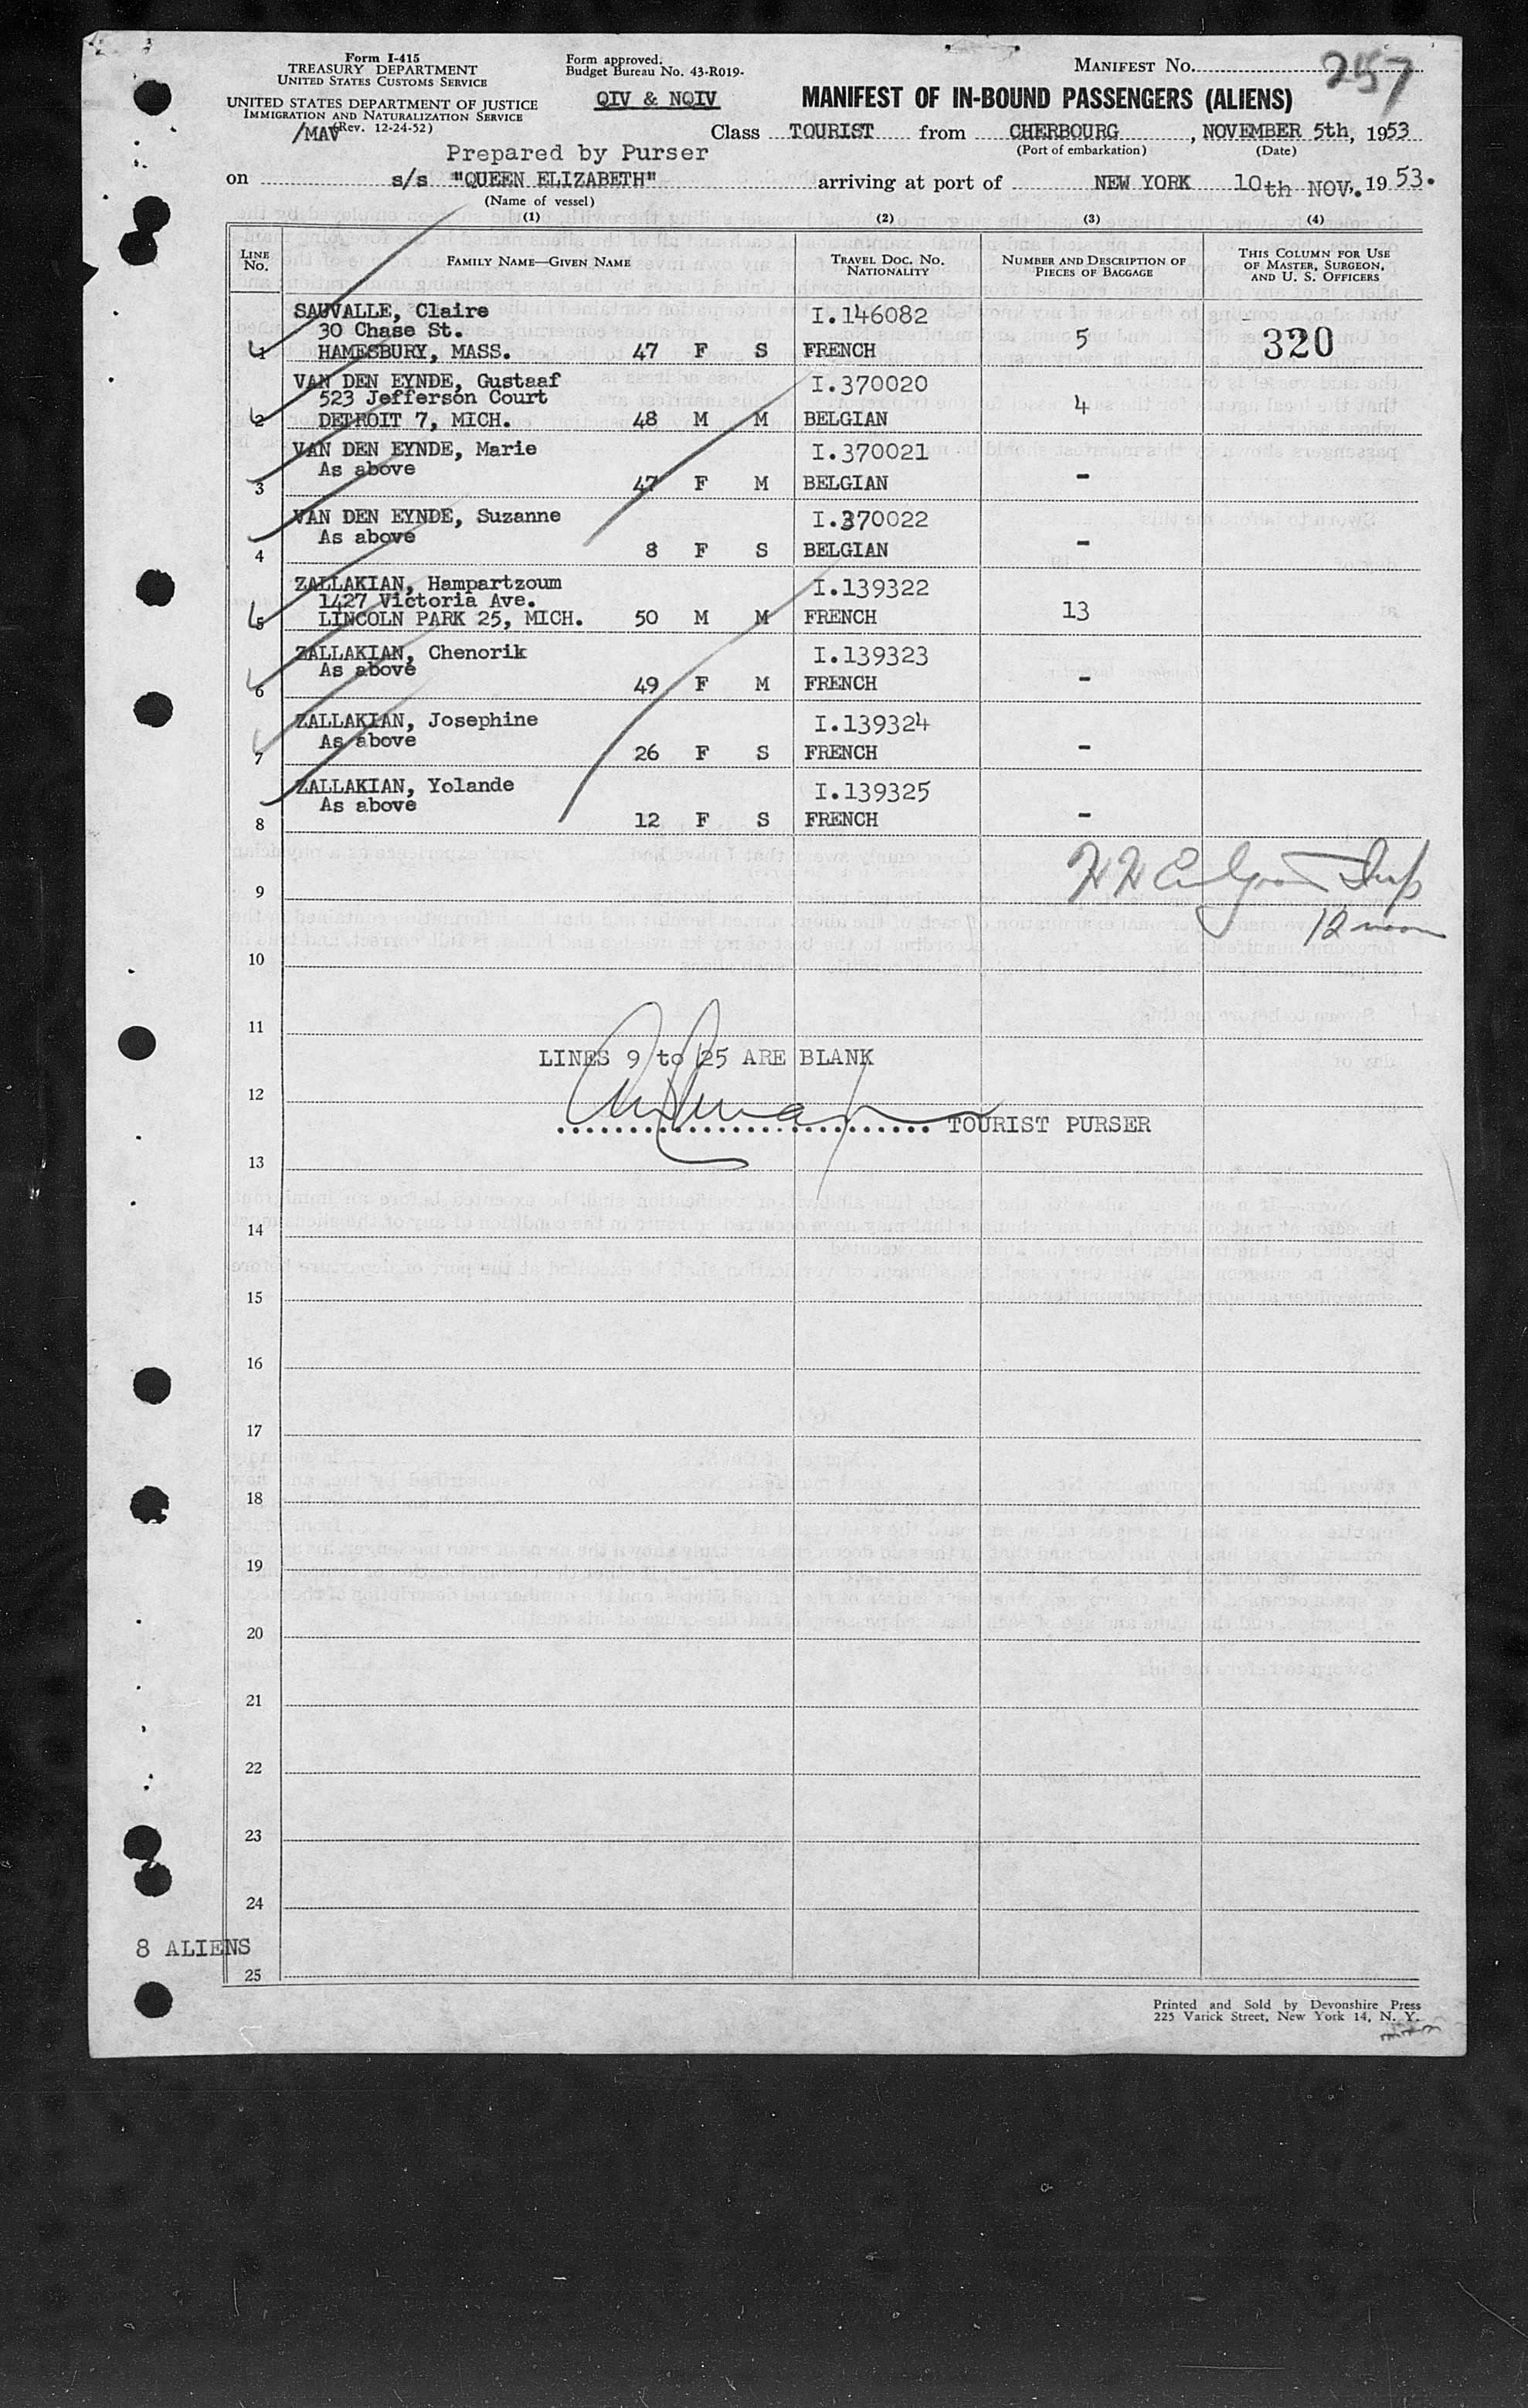 Form I-415
TREASURY DEPARTMENT
UNITED STATES CUSTOMS SERVICE
UNITED STATES DEPARTMENT OF JUSTICE
IMMIGRATION AND NATURALIZATION SERVICE
(Rev. 12-24-52)
/MAV
Form approved.
Budget Bureau No. 43-R019-
QIV & NQIV
MANIFEST No. 257
MANIFEST OF IN-BOUND PASSENGERS (ALIENS)
Class TOURIST from CHERBOURG, NOVEMBER 5th, 1953
(Port of embarkation) (Date)
Prepared by Purser
on s/s "QUEEN ELIZABETH" arriving at port of NEW YORK 10th NOV. 1953.
(Name of vessel)
(1) (2) (3) (4)
LINE No. FAMILY NAME—GIVEN NAME TRAVEL DOC. NO. NATIONALITY NUMBER AND DESCRIPTION OF PIECES OF BAGGAGE THIS COLUMN FOR USE OF MASTER, SURGEON, AND U. S. OFFICERS
SAUVALLE, Claire I.146082
30 Chase St. 5 320
1 HAMESBURY, MASS. 47 F S FRENCH
VAN DEN EYNDE, Gustaaf I.370020
523 Jefferson Court 4
2 DETROIT 7, MICH. 48 M M BELGIAN
VAN DEN EYNDE, Marie I.370021
As above
3 47 F M BELGIAN -
VAN DEN EYNDE, Suzanne I.370022
As above
4 8 F S BELGIAN -
ZALLAKIAN, Hampartzoum I.139322
1427 Victoria Ave.
5 LINCOLN PARK 25, MICH. 50 M M FRENCH 13
ZALLAKIAN, Chenorik I.139323
As above
6 49 F M FRENCH -
ZALLAKIAN, Josephine I.139324
As above
7 26 F S FRENCH -
ZALLAKIAN, Yolande I.139325
As above
8 12 F S FRENCH -
9
12 noon
10
11
LINES 9 to 25 ARE BLANK
12
TOURIST PURSER
13
14
15
16
17
18
19
20
21
22
23
24
8 ALIENS
25
Printed and Sold by Devonshire Press
225 Varick Street, New York 14, N. Y.